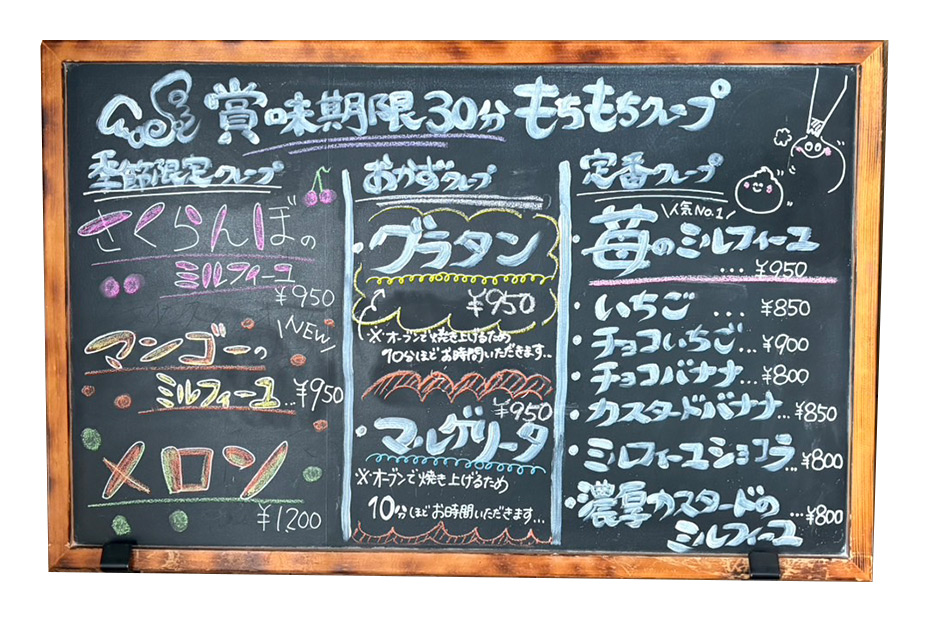 賞味期限30分 もちもちクレープ
季節限定クレープ
さくらんぼの
ミルフィーユ
¥950
NEW
マンゴーの
ミルフィーユ...¥950
メロン
¥1200
おかずクレープ
・グラタン
¥950
※オーブンで焼き上げるため
10分ほどお時間いただきます...
¥950
・マルゲリータ
※オーブンで焼き上げるため
10分ほどお時間いただきます...
定番クレープ
\人気No.1/
・苺のミルフィーユ
...¥950
・いちご ...¥850
・チョコいちご...¥900
・チョコバナナ...¥800
・カスタードバナナ...¥850
・ミルフィーユショコラ...¥800
・濃厚カスタードの
ミルフィーユ ...¥800